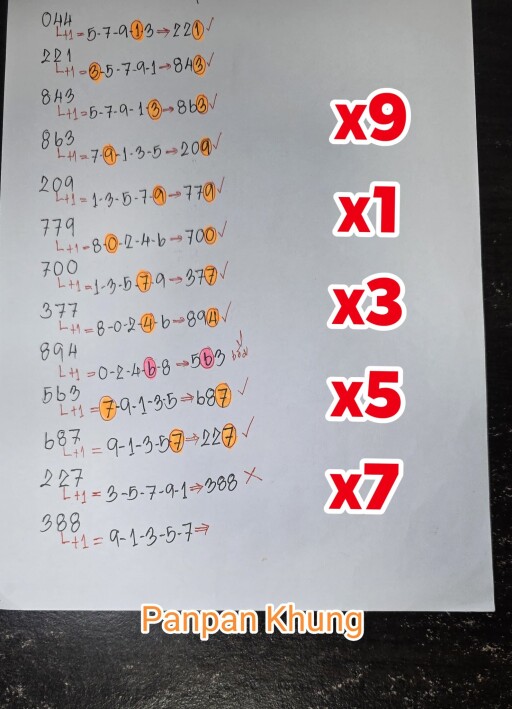 044
L+1=5-7-9-1-3⇒221✓
221
L+1=3-5-7-9-1→843✓
843
L+1=5-7-9-1-3→863✓
863
L+1=7-9-1-3-5→209✓
209
L+1=1-3-5-7-9→779✓
779
L+1=8-0-2-4-6→700✓
700
L+1=1-3-5-7-9→377✓
377
L+1=8-0-2-4-6→894✓
894
L+1=0-2-4-6-8→563 ✓
563
L+1=7-9-1-3-5⇒687✓
687
L+1=9-1-3-5-7⇒227✓
227
L+1=3-5-7-9-1⇒388 ×
388
L+1=9-1-3-5-7⇒
x9
x1
x3
x5
x7
Panpan Khung